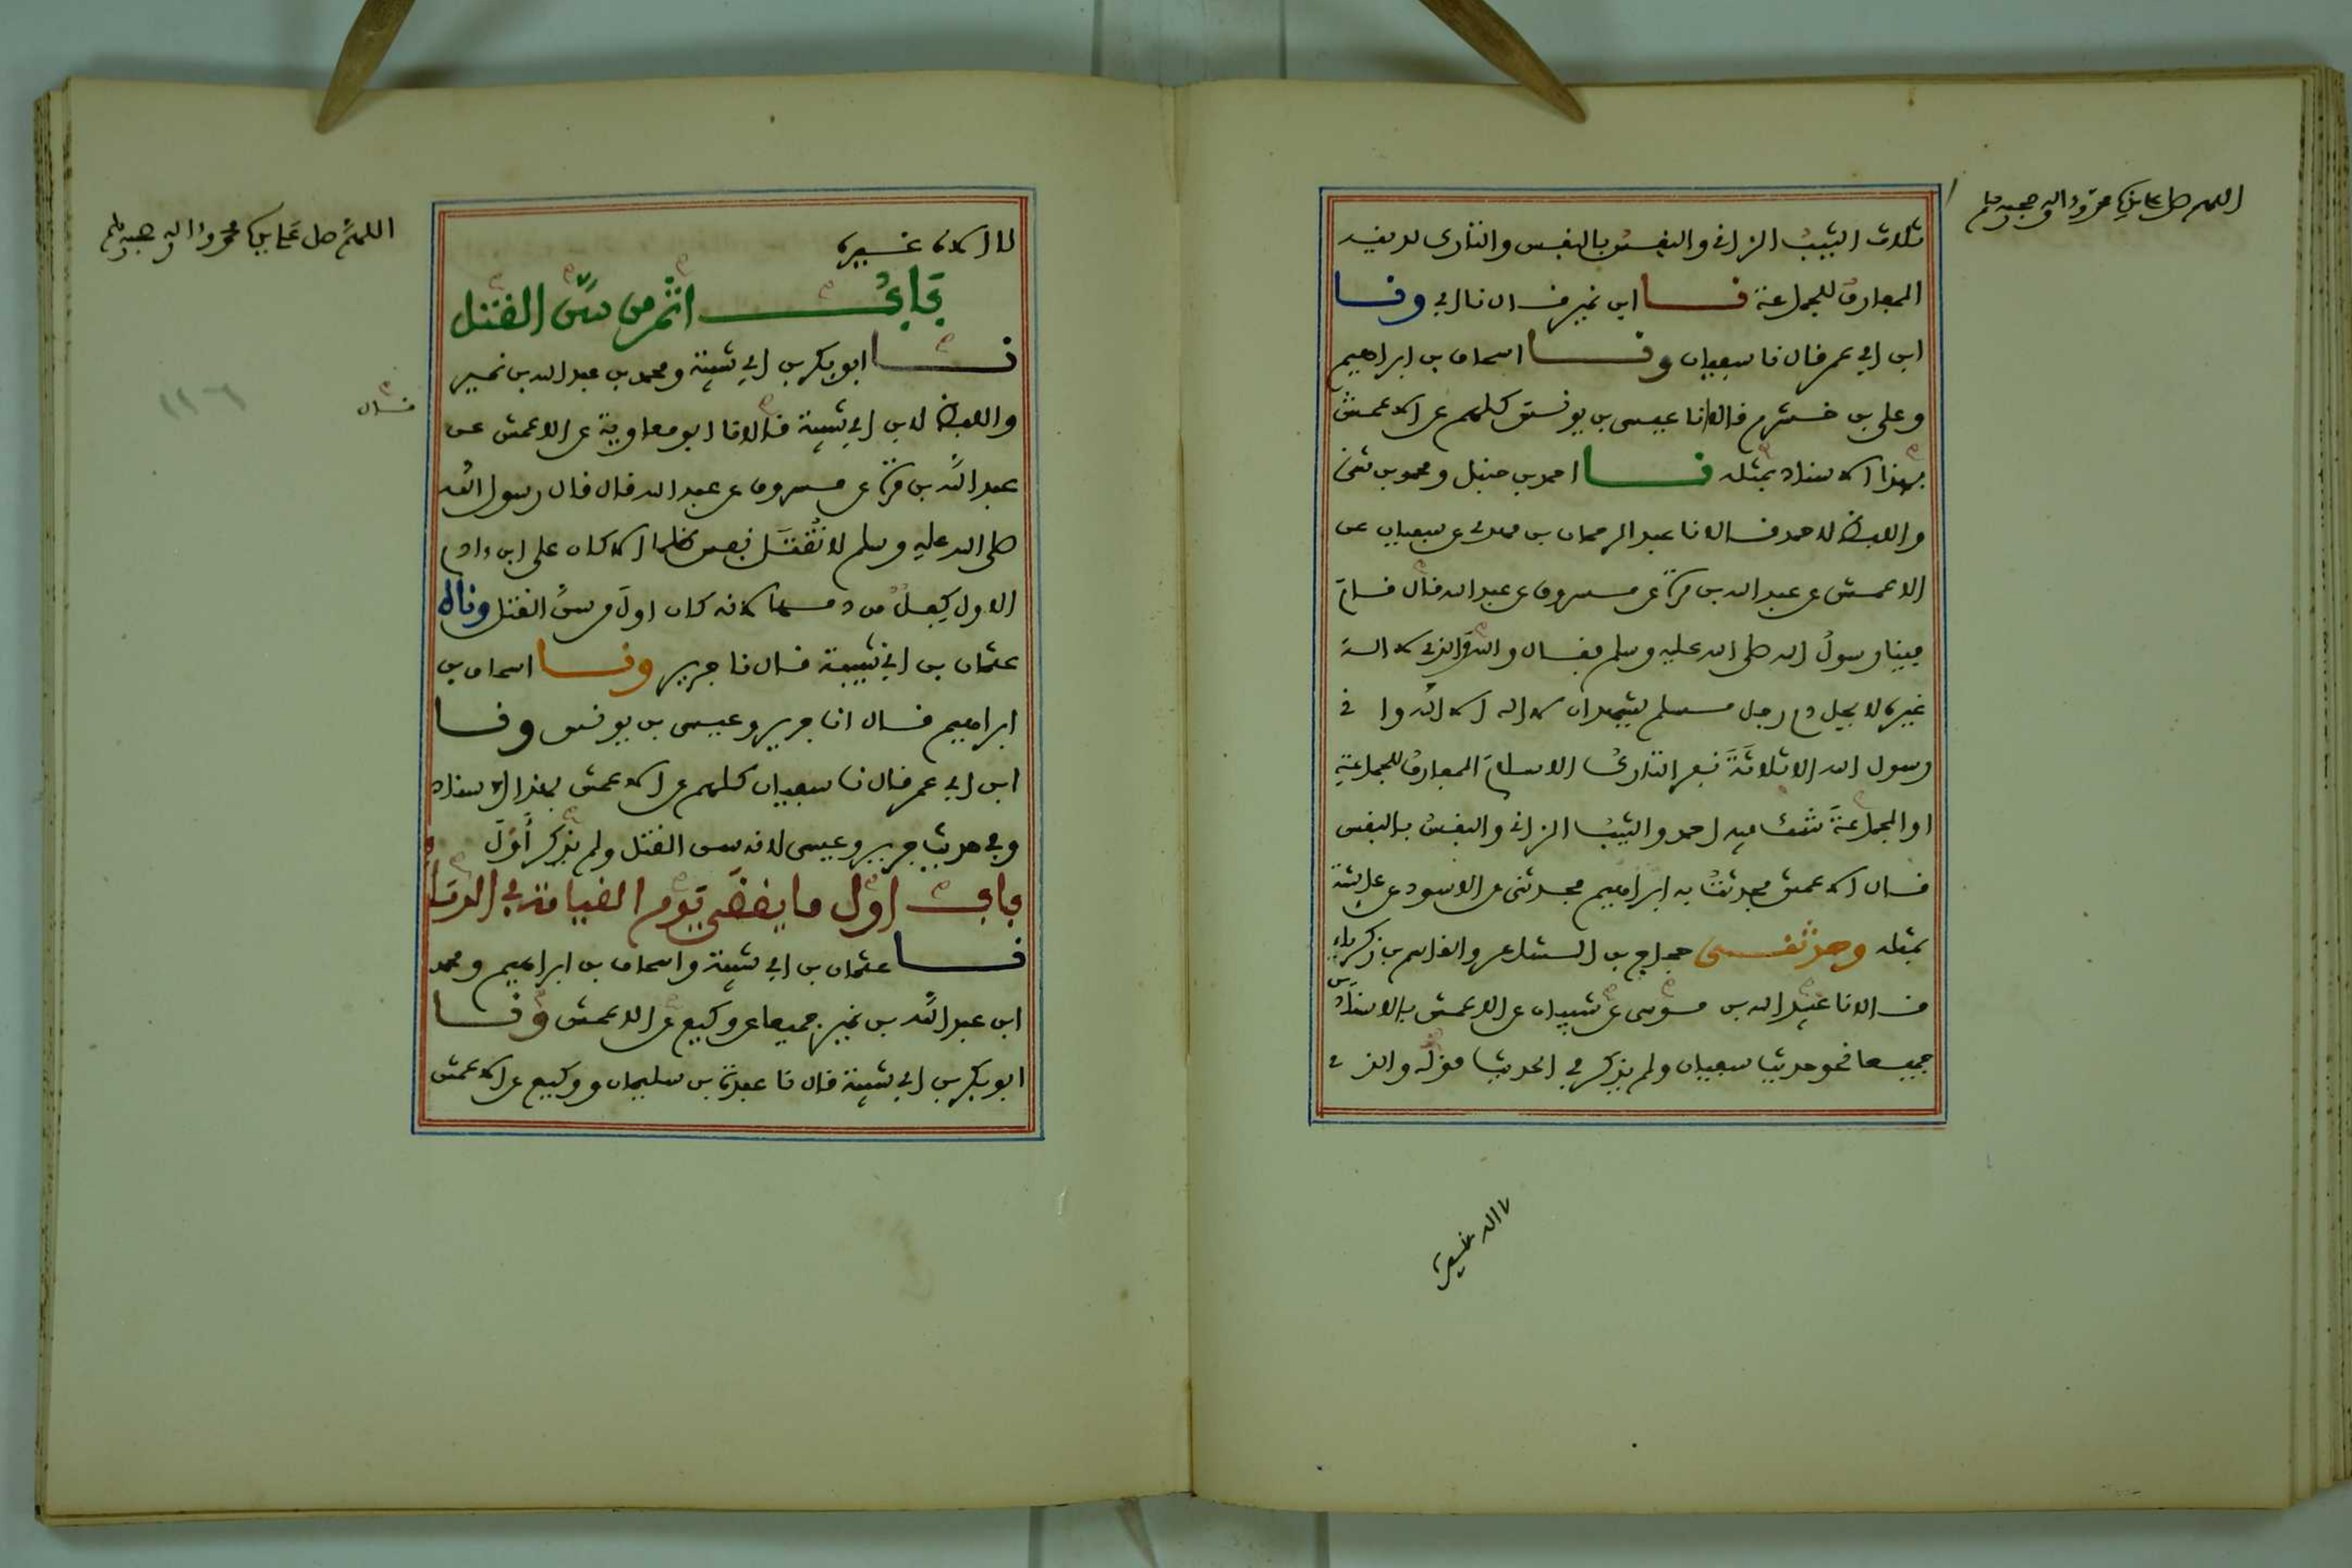 اللهم صل على نبينا محمد وءاله وصحبه وسلم
ثلاث الثيب الزاني والنفس بالنفس والتارك لدينه
المفارق للجماعة نا ابن نمير قال نا ابي ونا
ابن ابي عمر قال نا سفيان ونا اسحاق بن ابراهيم
وعلي بن خشرم قالا انا عيسى بن يونس كلهم عن الاعمش
بهذا الاسناد مثله نا احمد بن حنبل ومحمد بن مثنى
واللفظ لاحمد قالا نا عبد الرحمان بن مهدي عن سفيان عن
الاعمش عن عبد الله بن مرة عن مسروق عن عبد الله قال قام
فينا رسول الله صلى الله عليه وسلم فقال والله والذي لا اله
غيره لا يحل دم رجل مسلم يشهد ان لا اله الا الله واني
رسول الله الا ثلاثة نفر التارك الاسلام المفارق للجماعة
او الجماعة شك فيه احمد والثيب الزاني والنفس بالنفس
قال الاعمش فحدثت به ابراهيم فحدثني عن الاسود عن عايشة
بمثله وحدثني حجاج بن الشاعر والقاسم بن زكرياء
قالا نا عبيد الله بن موسى عن شيبان عن الاعمش بالاسنادين
جميعا نحو حديث سفيان ولم يذكر في الحديث قوله والذي
لا اله غيره
اللهم صل على نبينا محمد وءاله وصحبه وسلم
لا اله غيره
باب اثم من سن القتل
نا ابو بكر بن ابي شيبة ومحمد بن عبد الله بن نمير
واللفظ لابن ابي شيبة قالا نا ابو معاوية عن الاعمش عن
قال
عبد الله بن مرة عن مسروق عن عبد الله قال قال رسول الله
صلى الله عليه وسلم لا تقتل نفس ظلما الا كان على ابن ءادم
الاول كفل من دمها لانه كان اول من سن القتل وناه
عثمان بن ابي شيبة قال نا جرير ونا اسحاق بن
ابراهيم قال انا جرير وعيسى بن يونس ونا
ابن ابي عمر قال نا سفيان كلهم عن الاعمش بهذا الاسناد
وفي حديث جرير وعيسى لانه سن القتل ولم يذكر أول
باب اول ما يقضى يوم القيامة في الدما
نا عثمان بن ابي شيبة واسحاق بن ابراهيم ومحمد
ابن عبد الله بن نمير جميعا عن وكيع عن الاعمش ونا
ابو بكر بن ابي شيبة قال نا عبدة بن سليمان ووكيع عن الاعمش